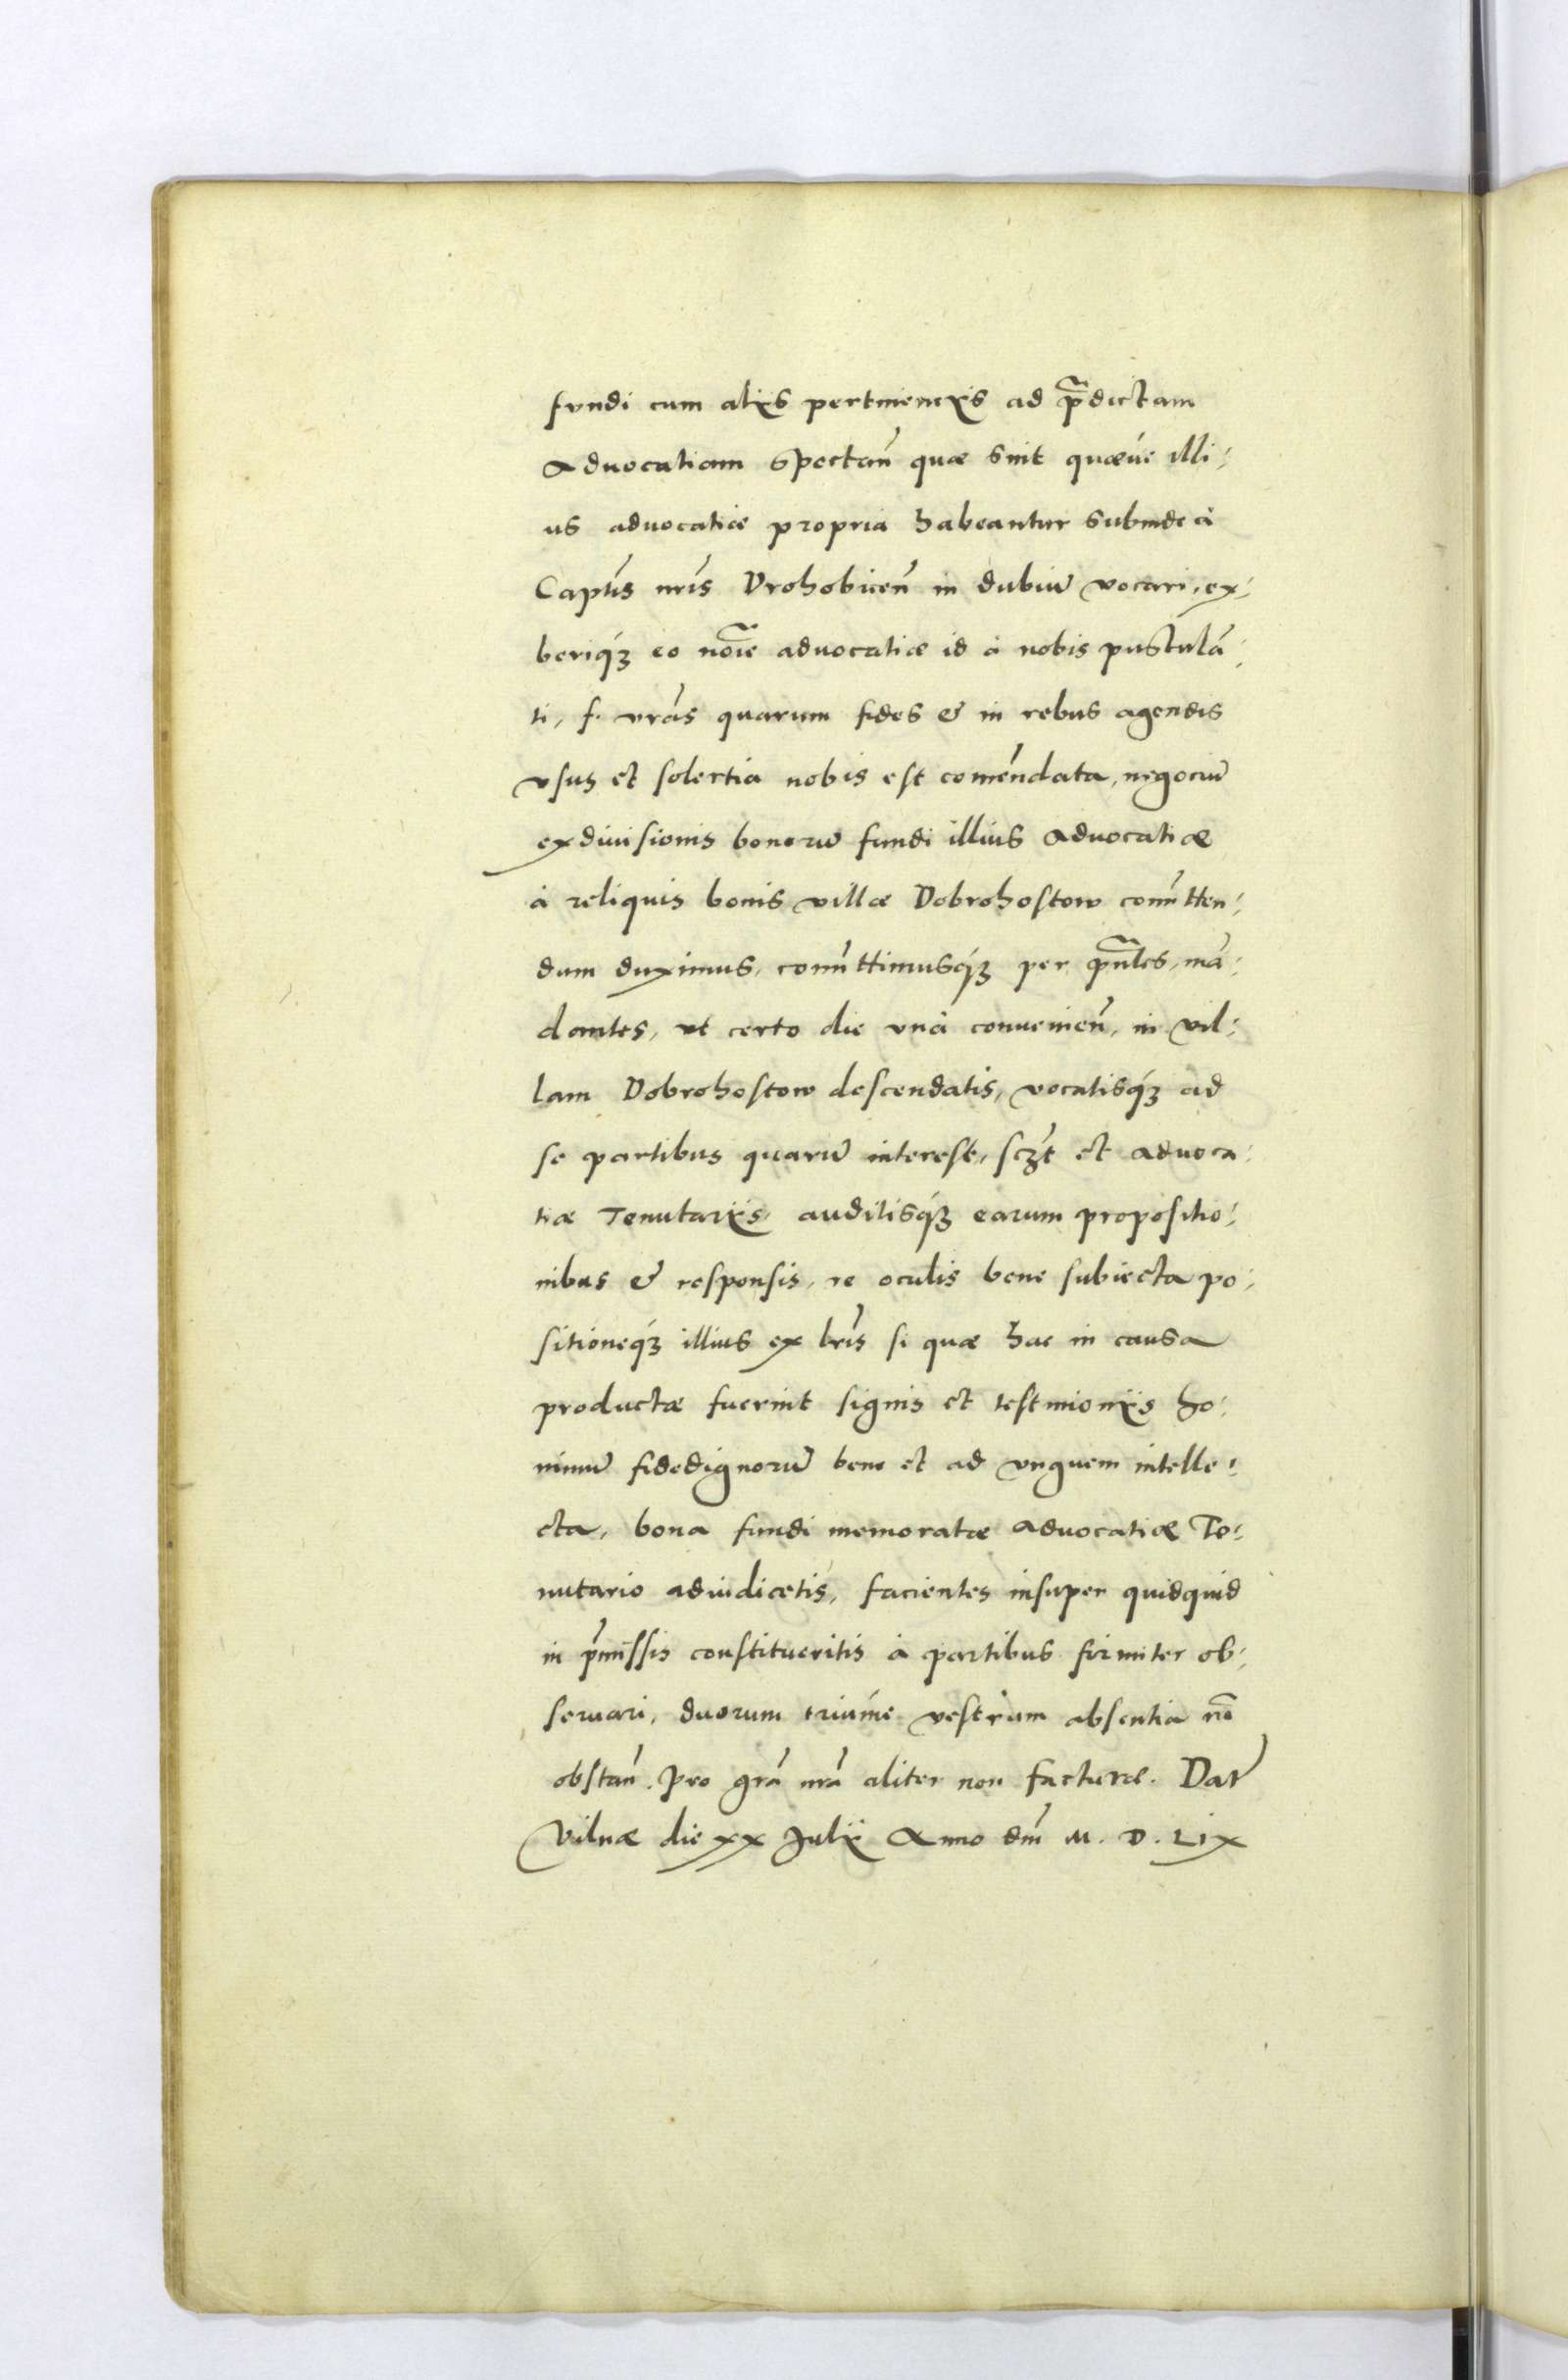 fundi cum alijs pertinencijs ad p̃dictam
Advocatiam spectan̄ quæ sint quæúe illi-
us advocatiæ propria habeantur subinde à
Captis̄ nr̄is Drohobicen̄ in dubiū vocari, ex-
beriq́ȝ eo no͠ie advocatiæ id à nobis pustulā-
ti, f. vrās quarum fides & in rebus agendis
vsus et solertia nobis est com̄endata, negociū
exdiuisionis bonorū fundi illius Advocatiæ
à reliquis bonis villæ Dobrohostow com̄itten-
dum duximus, com̄ittimusq́ȝ per p̃ntes, mā-
dantes, vt certo die vnà convenien̄, in vil-
lam Dobrohostow descendatis, vocatisq́ȝ ad
se partibus quarū interest, sczt̄ et advoca-
tiæ Tenutarijs, auditisq́ȝ earum propositio-
nibus & responsis, re oculis bene subiecta po-
sitioneq́ȝ illius ex lr̄is si quæ hac in causa
productæ fuerint signis et testimonijs ho-
minū fidedignorū bene et ad vnguem intelle-
cta, bona fundi memoratæ advocatiæ Te-
nutario adiudicetis, facientes insuper quidquid
in p̄missis constitueritis à partibus firmiter ob-
seruari, duorum triúmúe vestrum absentia nō
obstan̄. Pro grā nrā aliter non facturæ. Dat̄
Vilnæ die xx Julij Anno dn̄i M. D. Lix